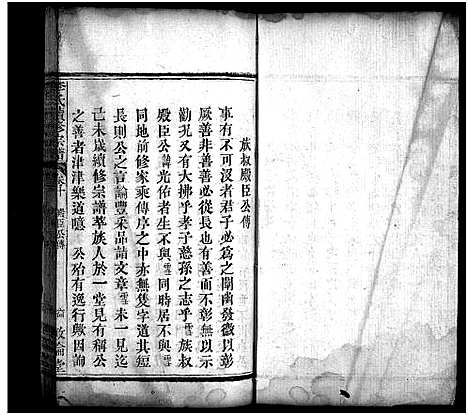 族叔殿臣公傳
事有不可沒者君子必為之闡幽發微以彰
厥善非善善必從長也有善而不彰無以
勸孔又有大拂乎孝子慈孫之志乎雲族叔
殿臣公諱光佑者生不與雲同時居不與雲
同地前修家乘傳序之中亦無隻字道其短
長則公之言論豐采品詣文章雲未一見迄
己未歲續修宗譜萃族人於一堂見有稱公
之善者津津樂道噫 公殆有逸行歟因詢
李氏續修宗譜 卷十 殿臣公傳 敦倫堂